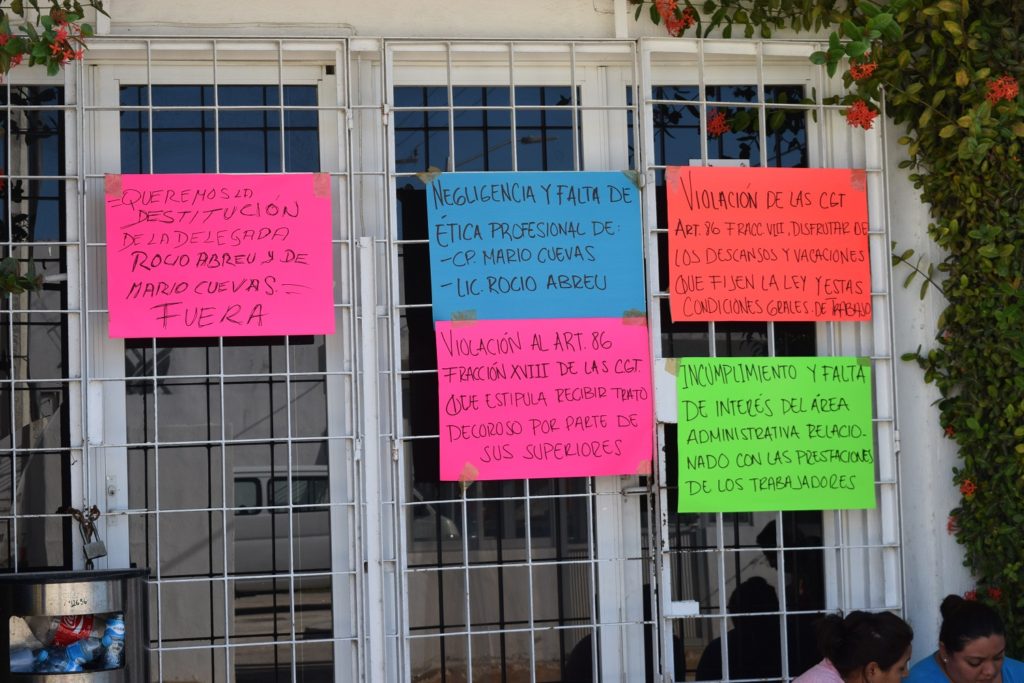 =QUEREMOS LA
DESTITUCIÓN
DE LA DELEGADA
ROCIO ABREU Y DE
MARIO CUEVAS.=
FUERA
NEGLIGENCIA Y FALTA DE
ÉTICA PROFESIONAL DE:
-CP. MARIO CUEVAS
-LIC. ROCIO ABREU
VIOLACIÓN AL ART. 86
FRACCIÓN XVIII DE LAS CGT.
QUE ESTIPULA RECIBIR TRATO
DECOROSO POR PARTE DE
SUS SUPERIORES
VIOLACIÓN DE LAS CGT
ART. 86 FRACC. VIII. DISFRUTAR DE
LOS DESCANSOS Y VACACIONES
QUE FIJEN LA LEY Y ESTAS
CONDICIONES GRALES. DE TRABAJO
INCUMPLIMIENTO Y FALTA
DE INTERÉS DEL ÁREA
ADMINISTRATIVA RELACIO-
NADO CON LAS PRESTACIONES
DE LOS TRABAJADORES